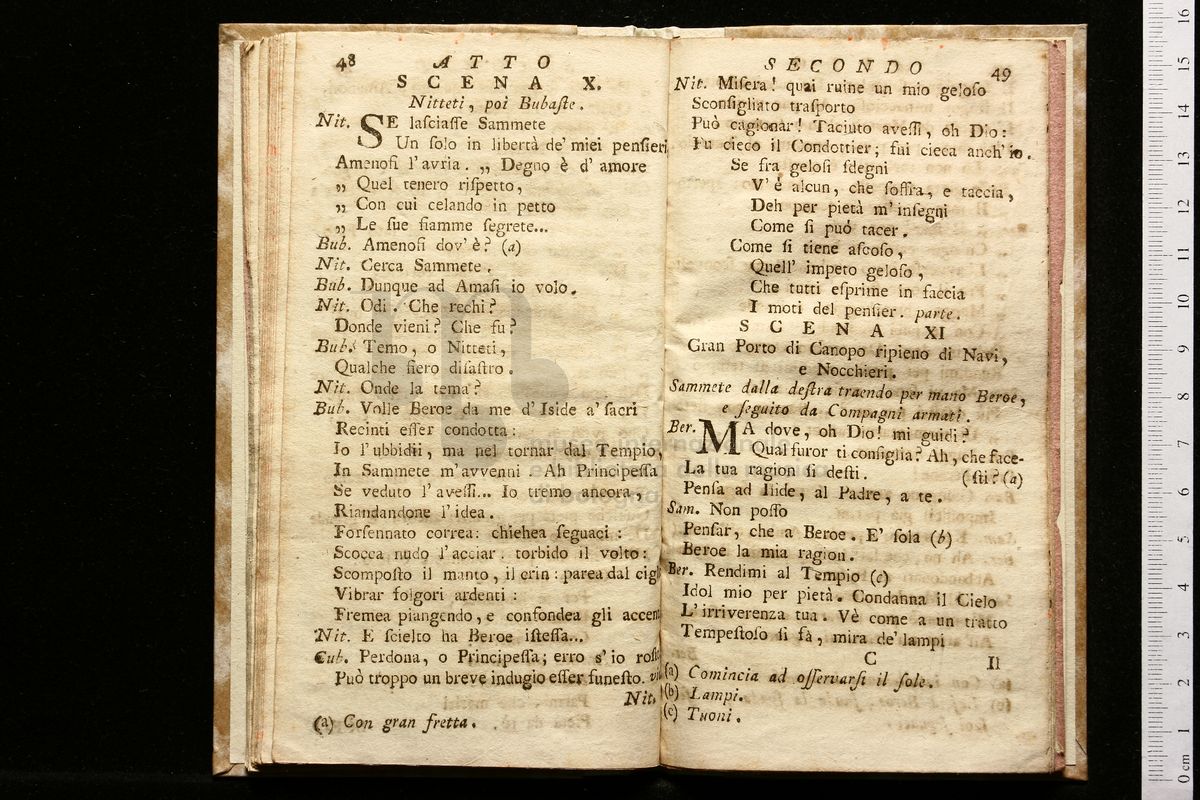 48 ATTO
SCENA X.
Nitteti, poi Bubaſte.
Nit. SE laſciaſſe Sammete
Un ſolo in libertà de' miei penſieri
Amenoſi l'avria. „ Degno è d'amore
„ Quel tenero riſpetto,
„ Con cui celando in petto
„ Le ſue fiamme ſegrete...
Bub. Amenoſi dov'è? (a)
Nit. Cerca Sammete.
Bub. Dunque ad Amaſi io volo.
Nit. Odi. Che rechi?
Donde vieni? Che fu?
Bub. Temo, o Nitteti,
Qualche fiero diſaſtro.
Nit. Onde la tema?
Bub. Volle Beroe da me d'Iside a' ſacri
Recinti eſſer condotta:
Io l'ubbidii, ma nel tornar dal Tempio,
In Sammete m'avvenni. Ah Principeſſa
Se veduto l'aveſſi... Io tremo ancora,
Riandandone l'idea.
Forſennato correa: chiehea ſeguaci:
Scocca nudo l'acciar. torbido il volto:
Scompoſto il manto, il crin: parea dal cigl
Vibrar folgori ardenti:
Fremea piangendo, e confondea gli accent
Nit. E ſcielto ha Beroe iſteſſa...
Cub. Perdona, o Principeſſa; erro s'io
Può troppo un breve indugio eſſer funeſto.
Nit.
(a) Con gran fretta.
SECONDO 49
Nit. Miſera! quai ruine un mio geloſo
Sconſigliato traſporto
Può cagionar! Taciuto aveſſi, oh Dio:
Fu cieco il Condottier; fui cieca anch'io.
Se fra geloſi ſdegni
V'é alcun, che ſoffra, e taccia,
Deh per pietà m'inſegni
Come ſi puó tacer.
Come ſi tiene aſcoſo,
Quell' impeto geloſo,
Che tutti eſprime in faccia
I moti del penſier. parte.
SCENA XI
Gran Porto di Canopo ripieno di Navi,
e Nocchieri.
Sammete dalla deſtra traendo per mano Beroe,
e ſeguito da Compagni armati.
Ber. MA dove, oh Dio! mi guidi?
Qual furor ti conſiglia? Ah, che face-
La tua ragion ſi deſti. (ſti? (a)
Penſa ad Iſide, al Padre, a te.
Sam. Non poſſo
Penſar, che a Beroe. E' ſola (b)
Beroe la mia ragion.
Ber. Rendimi al Tempio (c)
Idol mio per pietà. Condanna il Cielo
L'irriverenza tua. Vè come a un tratto
Tempeſtoſo ſi fà, mira de' lampi
C Il
(a) Comincia ad oſſervarſi il ſole.
(b) Lampi.
(c) Tuoni.